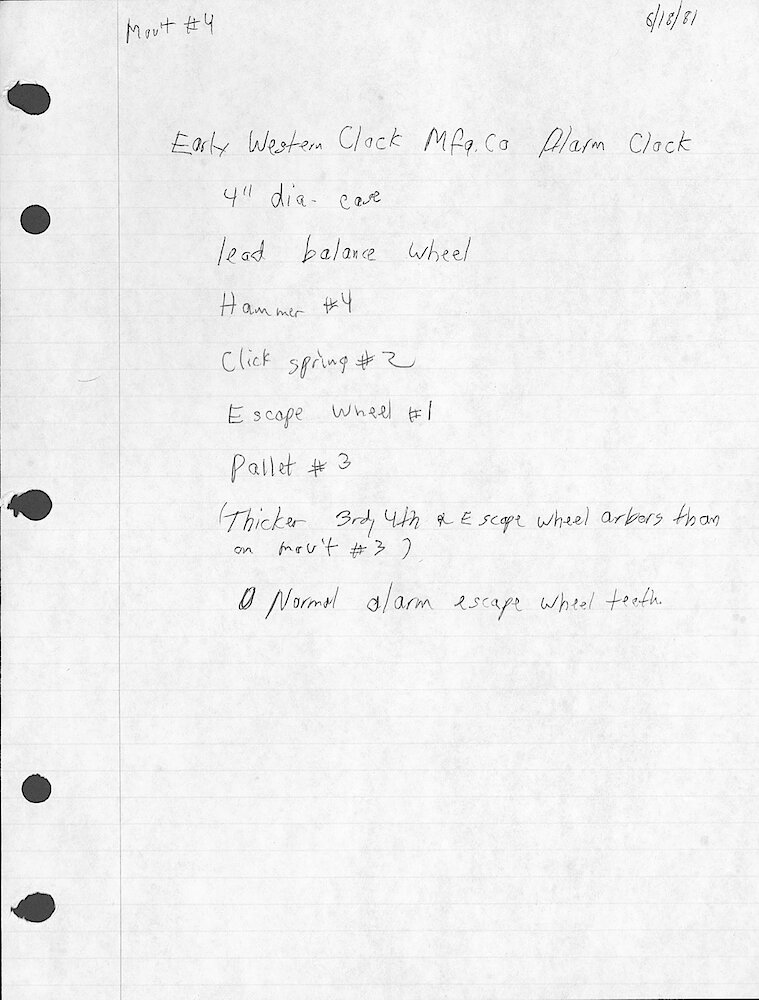 Mov't #4
6/18/81
Early Western Clock Mfg. Co Alarm Clock
4" dia. case
lead balance wheel
Hammer #4
Click spring #2
Escape wheel #1
Pallet #3
(Thicker 3rd, 4th & Escape wheel arbors than
on mov't #3)
Normal alarm escape wheel teeth.